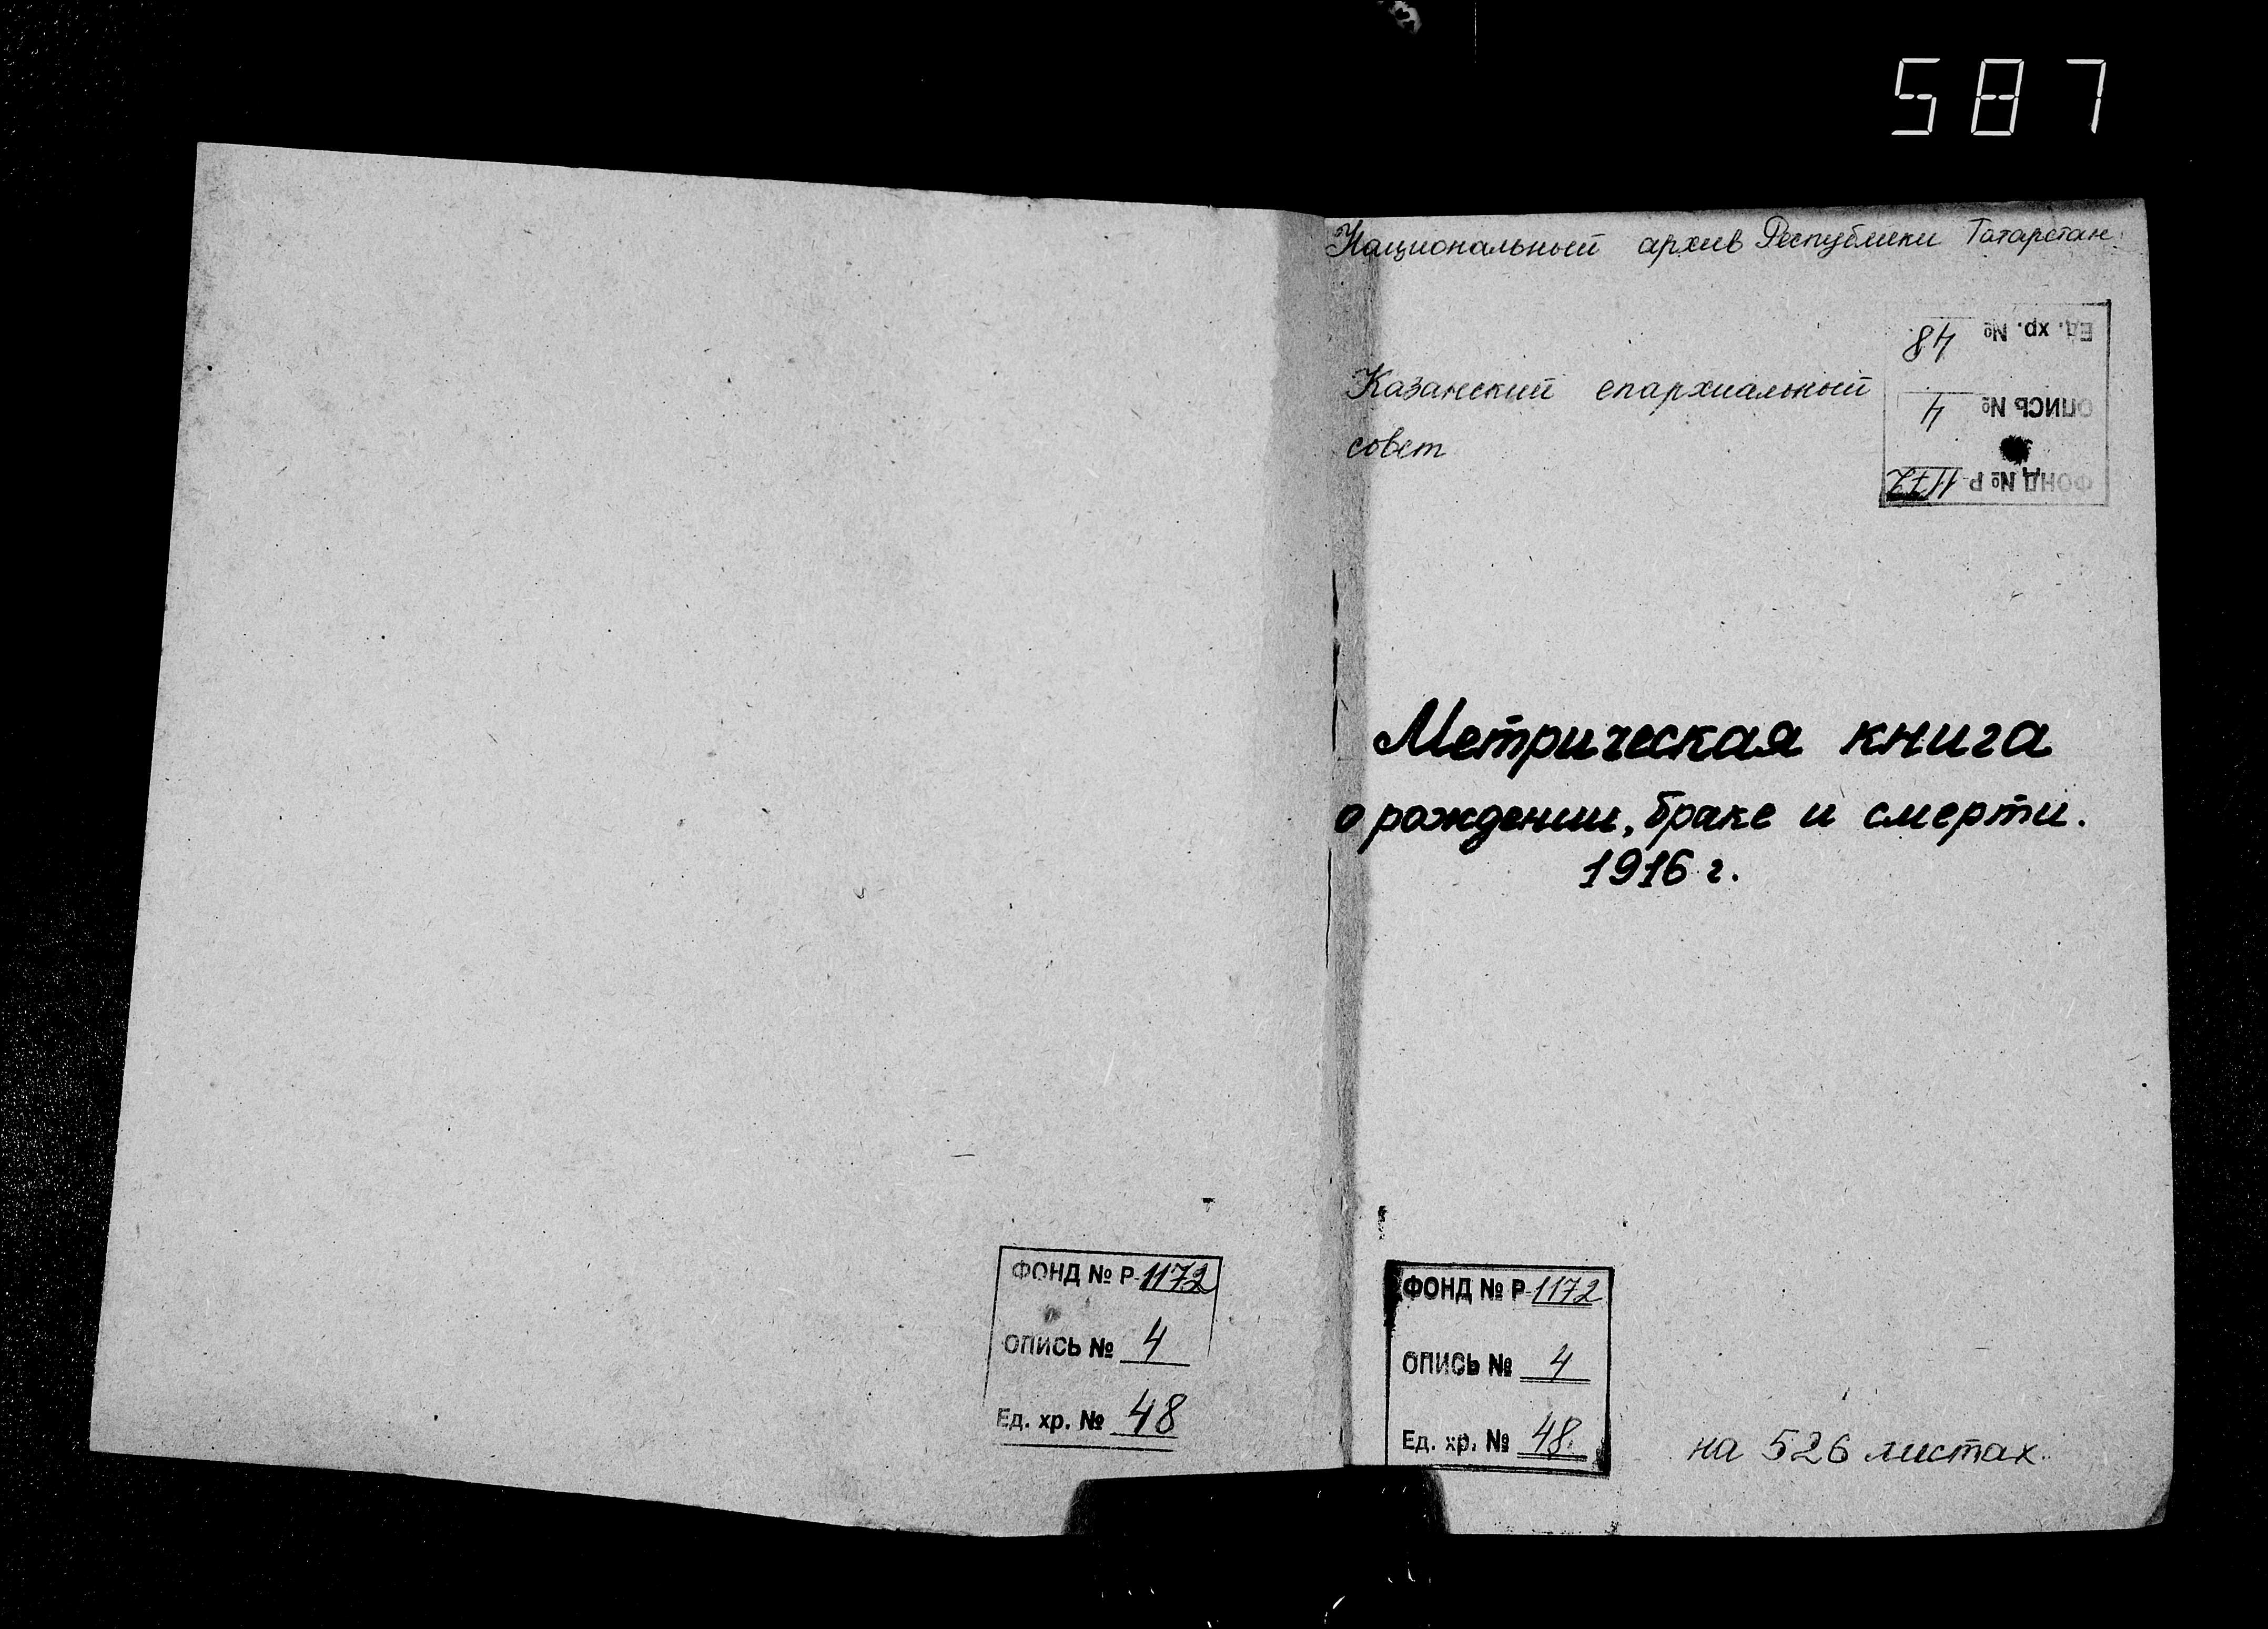 587
Национальный архив Республики Татарстан.
Ед. хр. № 48
ОПИСЬ № 4
ФОНД № Р-1172
Казанский епархиальный
совет
Метрическая книга
о рождении, браке и смерти.
1916 г.
ФОНД № Р-1172
ОПИСЬ № 4
Ед. хр. № 48
ФОНД № Р-1172
ОПИСЬ № 4
Ед. хр. № 48.
на 526 листах.